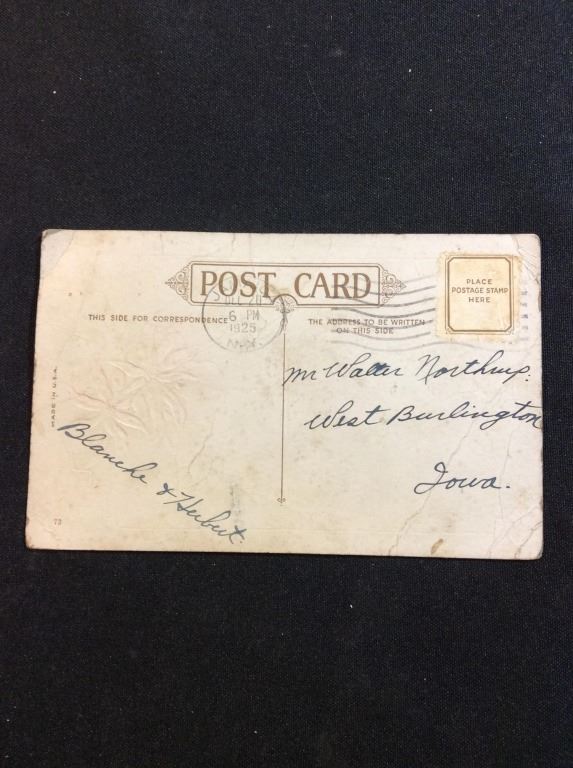 POST CARD
DEC 20
6 PM
1925
THIS SIDE FOR CORRESPONDENCE
THE ADDRESS TO BE WRITTEN
ON THIS SIDE
PLACE
POSTAGE STAMP
HERE
MADE IN U.S.A.
Mr Walter Northrup.
West Burlington
Iowa.
Blanche & Herbert.
73